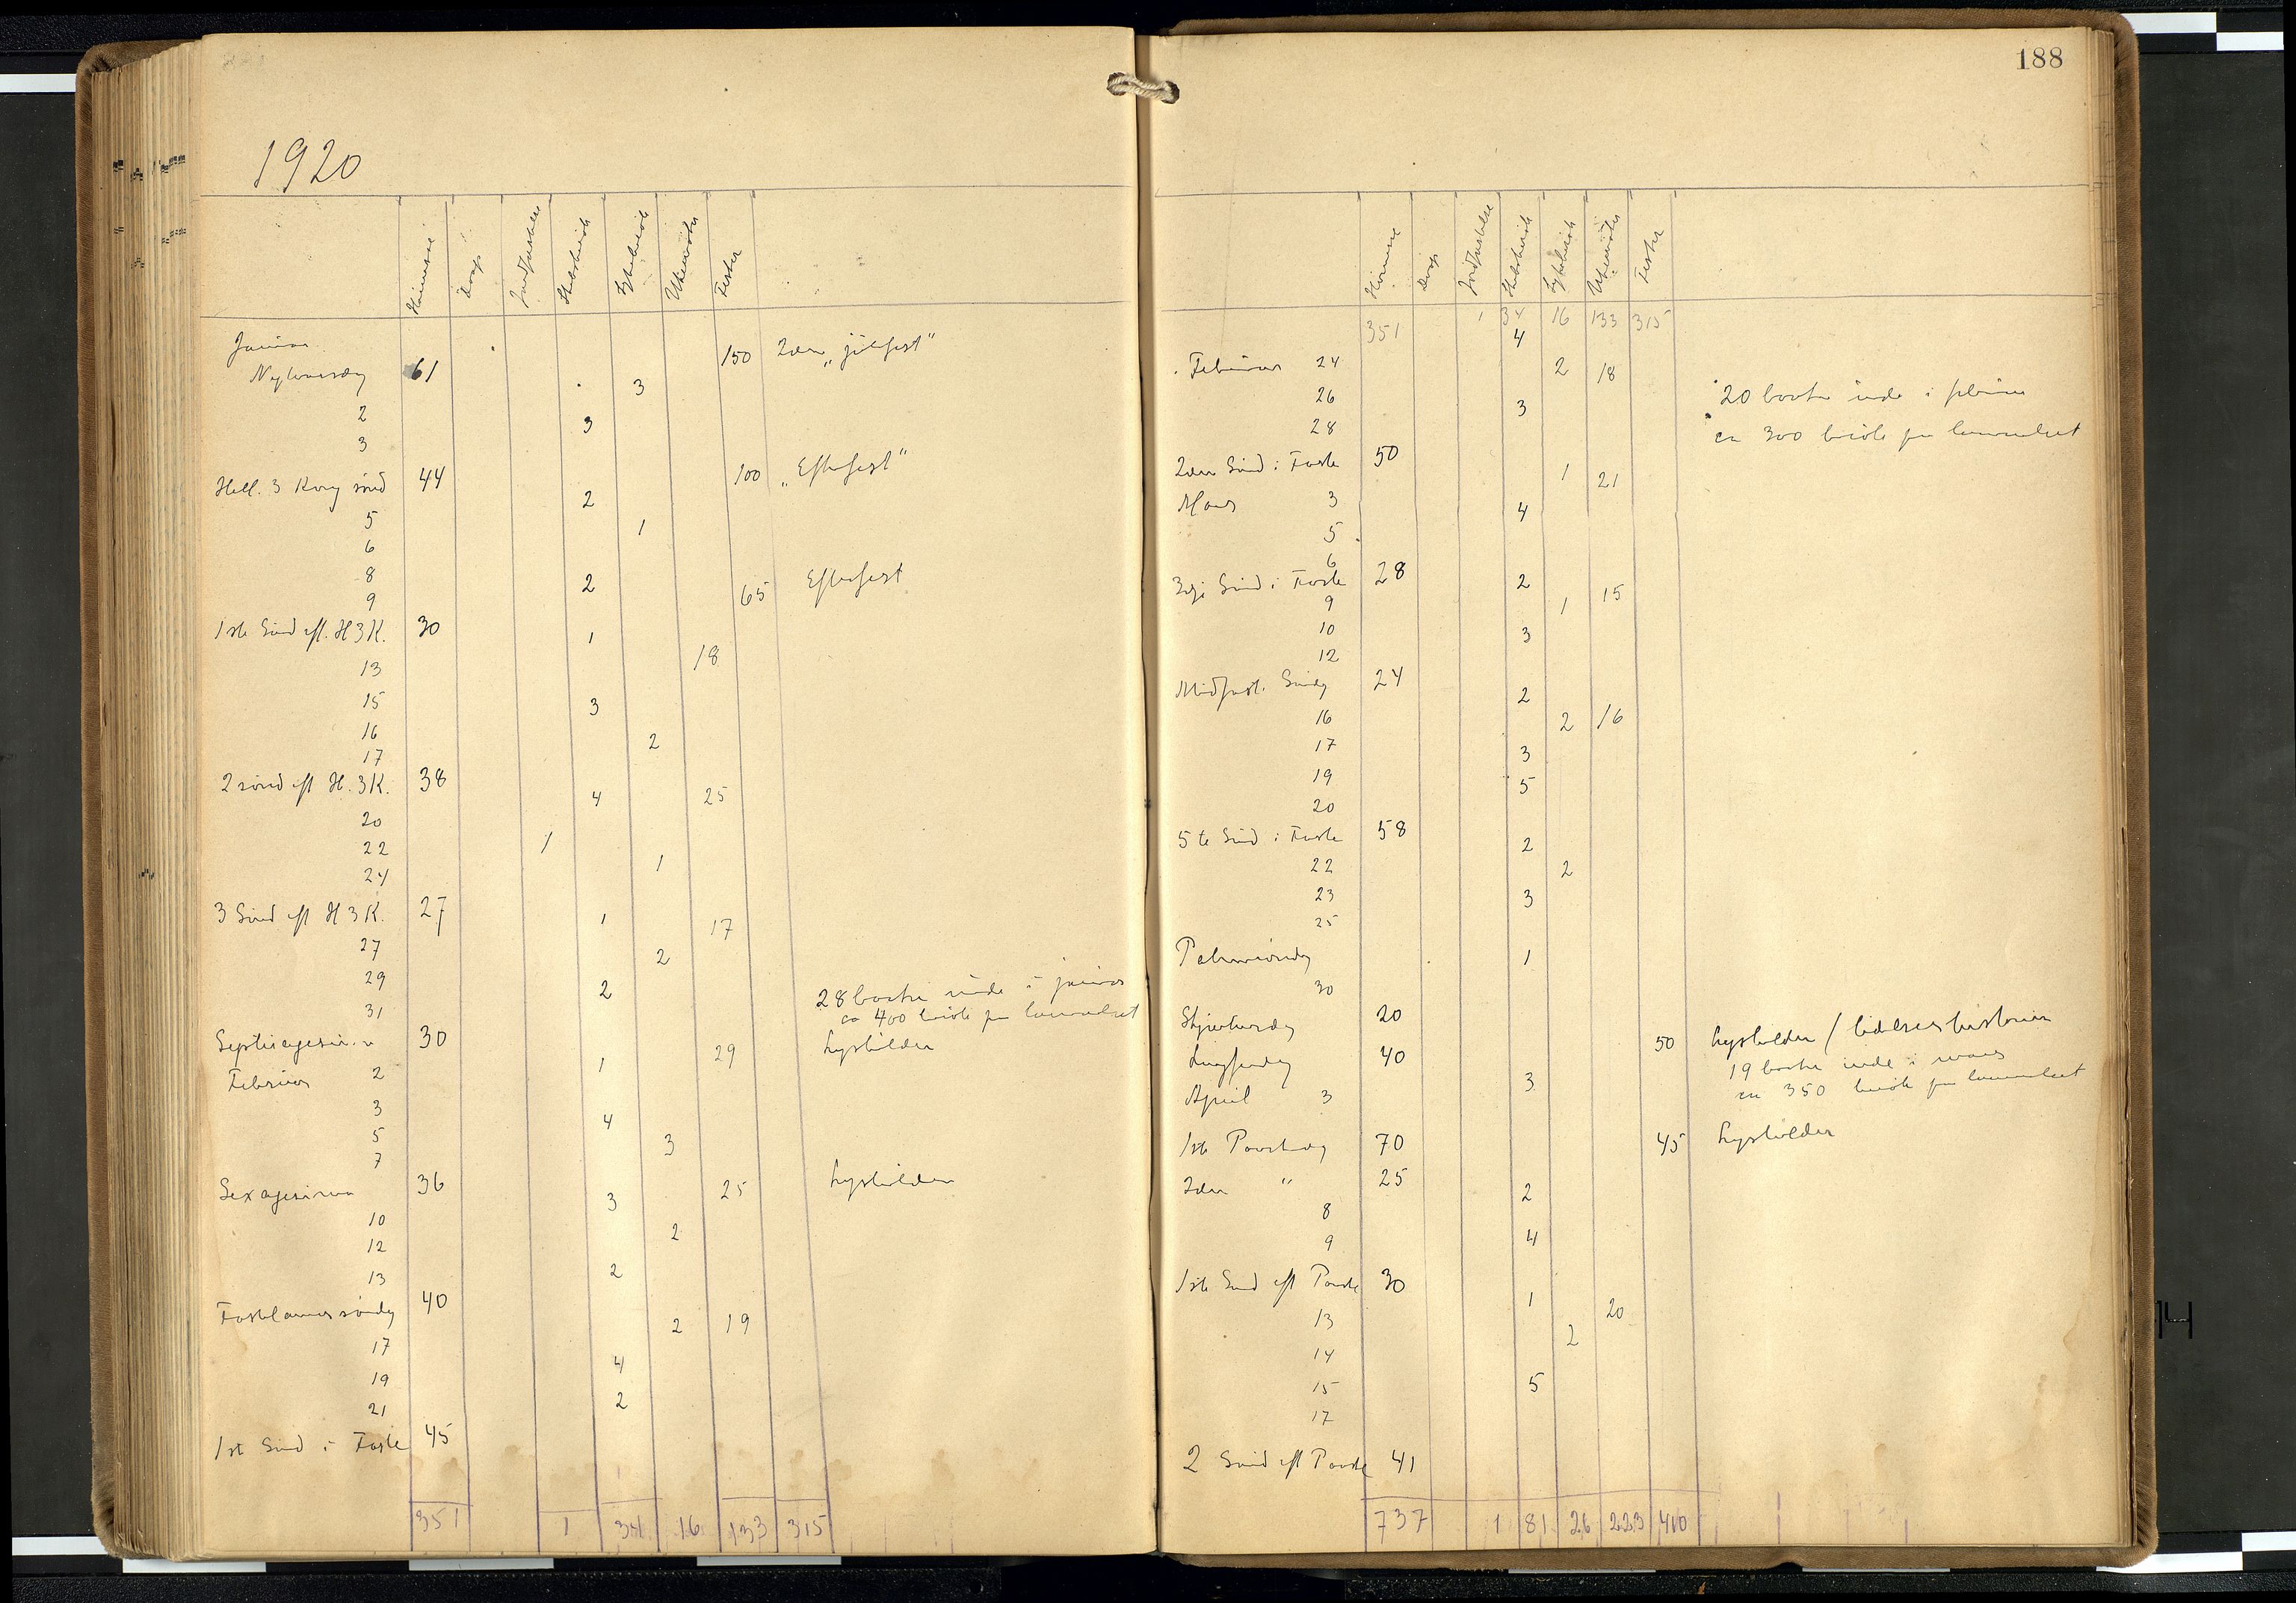 1920
Dåp Jordfæstelse Skibsbesök Sykebesök Utemöter Fester
Januar 150 2den „julefest"
Nyttaarsdag 61 3
2 3
3
Hell. 3 Kong sönd 44 100 „Efterfest"
5 2
6 1
8
9 2 65 Efterfest
1ste Sönd eft. H 3 K. 30
13 1 18
15 3
16 2
17
2 sönd eft H. 3 K. 38
20 4 25
22 1
24 1
3 Sönd eft H 3 K. 27
27 1 17
29 2
31 2 28 baater inde i januar
ca 400 besök paa læseværelset
Septuagesima 30 29 Lysbilder
Februar 2 1
3
5 4
7 3
Sexagesima 36 25 Lysbilder
10 3
12 2
13 2
Fastelavnssöndag 40
17 2 19
19 4
21 2
1ste Sönd i Faste 45
351 1 34 16 133 315
188
Dåp Jordfæstelse Skibsbesök Sykebesök Utemöter Fester
351 1 34 16 133 315
Februar 24 4
26 2 18 20 baater inde i februar
28 3 ca 300 besök paa læseværelset
2den Sönd i Faste 50
Mars 3 1 21
5 4
6
3dje Sönd i Faste 28
9 2
10 1 15
12 3
Midfaste Söndag 24
16 2
17 2 16
19 3
20 5
5te Sönd i Faste 58
22 2
23 2
25 3
Palmesöndag
30 1
Skjærtorsdag 20
Langfredag 40 50 Lysbilder / lidelseshistorien
19 baater inde i mars
April 3 3 ca 350 besök paa læseværelset
1ste Paaskedag 70 45 Lysbilder
2den " 25
8 2
9 4
1ste Sönd eft Paaske 30
13 1 20
14 2
15 5
17
2 Sönd eft Paaske 41
737 1 81 26 223 410